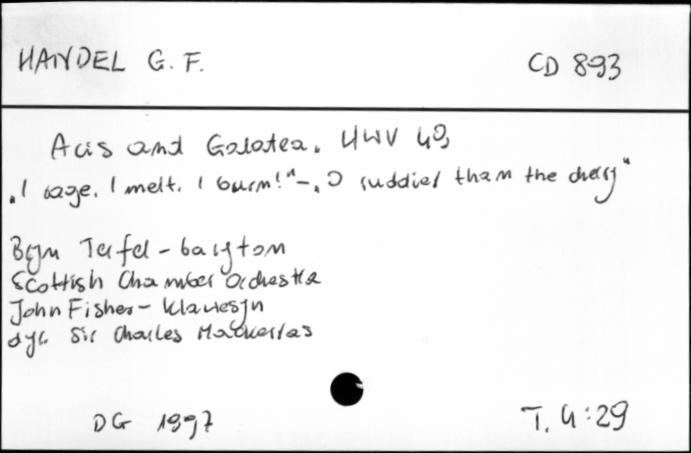 HANDEL G. F.
CD 893
Acis and Galatea. HWV 49
„I rage. I melt. I burn!" – „O ruddier than the cherry"
Bryn Terfel - baryton
Scottish Chamber Orchestra
John Fisher - klawesyn
dyr. Sir Charles Mackerras
DG 1997
T. 4:29